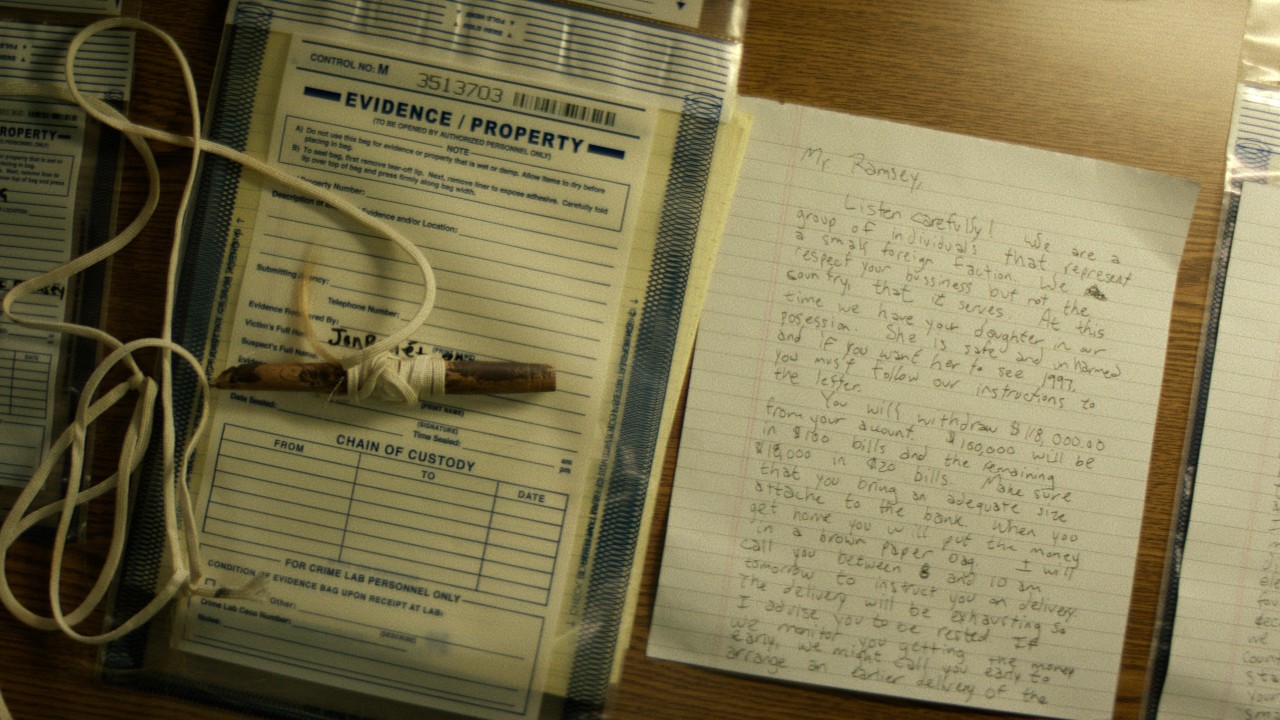 CONTROL NO: M 3513703
EVIDENCE / PROPERTY
(TO BE OPENED BY AUTHORIZED PERSONNEL ONLY)
NOTE
A) Do not use this bag for evidence or property that is wet or damp. Allow items to dry before
placing in bag.
B) To seal bag, first remove tear-off lip. Next, remove liner to expose adhesive. Carefully fold
lip over top of bag and press firmly along bag width.
Property Number:
Description of Evidence and/or Location:
Submitting Agency:
Telephone Number:
Victim's Full Name
Suspect's Full Name
(PRINT NAME)
(SIGNATURE)
Date Sealed:
Time Sealed:
am
pm
CHAIN OF CUSTODY
FROM TO DATE
FOR CRIME LAB PERSONNEL ONLY
CONDITION OF EVIDENCE BAG UPON RECEIPT AT LAB:
Other:
Crime Lab Case Number:
Notes:
PROPERTY
DATE
Mr. Ramsey,
Listen carefully! We are a
group of individuals that represent
a small foreign faction. We
respect your bussiness but not the
country, that it serves. At this
time we have your daughter in our
posession. She is safe and unharmed
and if you want her to see 1997,
you must follow our instructions to
the letter.
You will withdraw $118,000.00
from your account. $100,000 will be
in $100 bills and the remaining
$18,000 in $20 bills. Make sure
that you bring an adequate size
attache to the bank. When you
get home you will put the money
in a brown paper bag. I will
call you between 8 and 10 am
tomorrow to instruct you on delivery.
The delivery will be exhausting so
I advise you to be rested. If
we monitor you getting the money
early, we might call you early to
arrange an earlier delivery of the